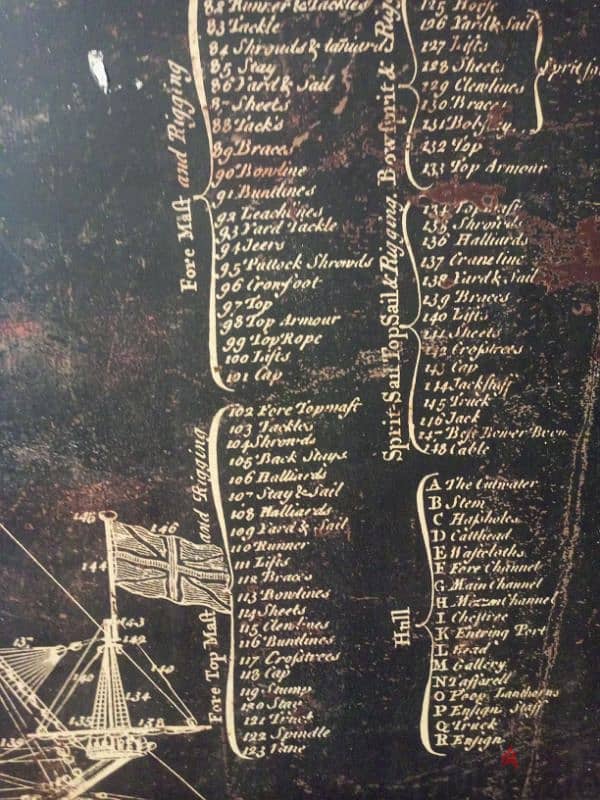 82 Runner & Tackles
83 Tackle
84 Shrouds & lanard
85 Stay
86 Yard & Sail
8- Sheets
88 Tacks
89 Braces
90 Bowline
91 Buntlines
92 Leachlines
93 Yard Tackle
94 Jeers
95 Puttock Shrowds
96 Crowfoot
97 Top
98 Top Armour
99 Top Rope
100 Lifts
101 Cap
Fore Mast and Rigging
102 Fore Topmast
103 Tackles
104 Shrowds
105 Back Stays
106 Halliards
107 Stay & Sail
108 Halliards
109 Yard & Sail
110 Runner
111 Lifts
112 Braces
113 Bowlines
114 Sheets
115 Clewlines
116 Buntlines
117 Crosstrees
118 Cap
119 Stump
120 Stay
121 Truck
122 Spindle
123 Vane
Fore Top Mast and Rigging
125 Horse
126 Yard & Sail
127 Lifts
128 Sheets
129 Clewlines
130 Braces
131 Bobstay
132 Top
133 Top Armour
Bowsprit &
134 Topmast
135 Shrowds
136 Halliards
137 Craneline
138 Yard & Sail
139 Braces
140 Lifts
141 Sheets
142 Crosstrees
143 Cap
144 Jackstaff
145 Truck
146 Jack
147 Best Bower
148 Cable
Sprit-Sail TopSail & Rigging.
A The Cutwater
B Stem
C Hasholes
D Cathead
E Wastcloths
F Fore Channel
G Main Channel
H Mizzon Channel
I Chestree
K Entring Port
L Head
M Gallery
N Taffarell
O Poop Lanthorns
P Ensign Staff
Q Truck
R Ensign
Hull
145
146
144
143
142
137
140
140
134
135
138
139